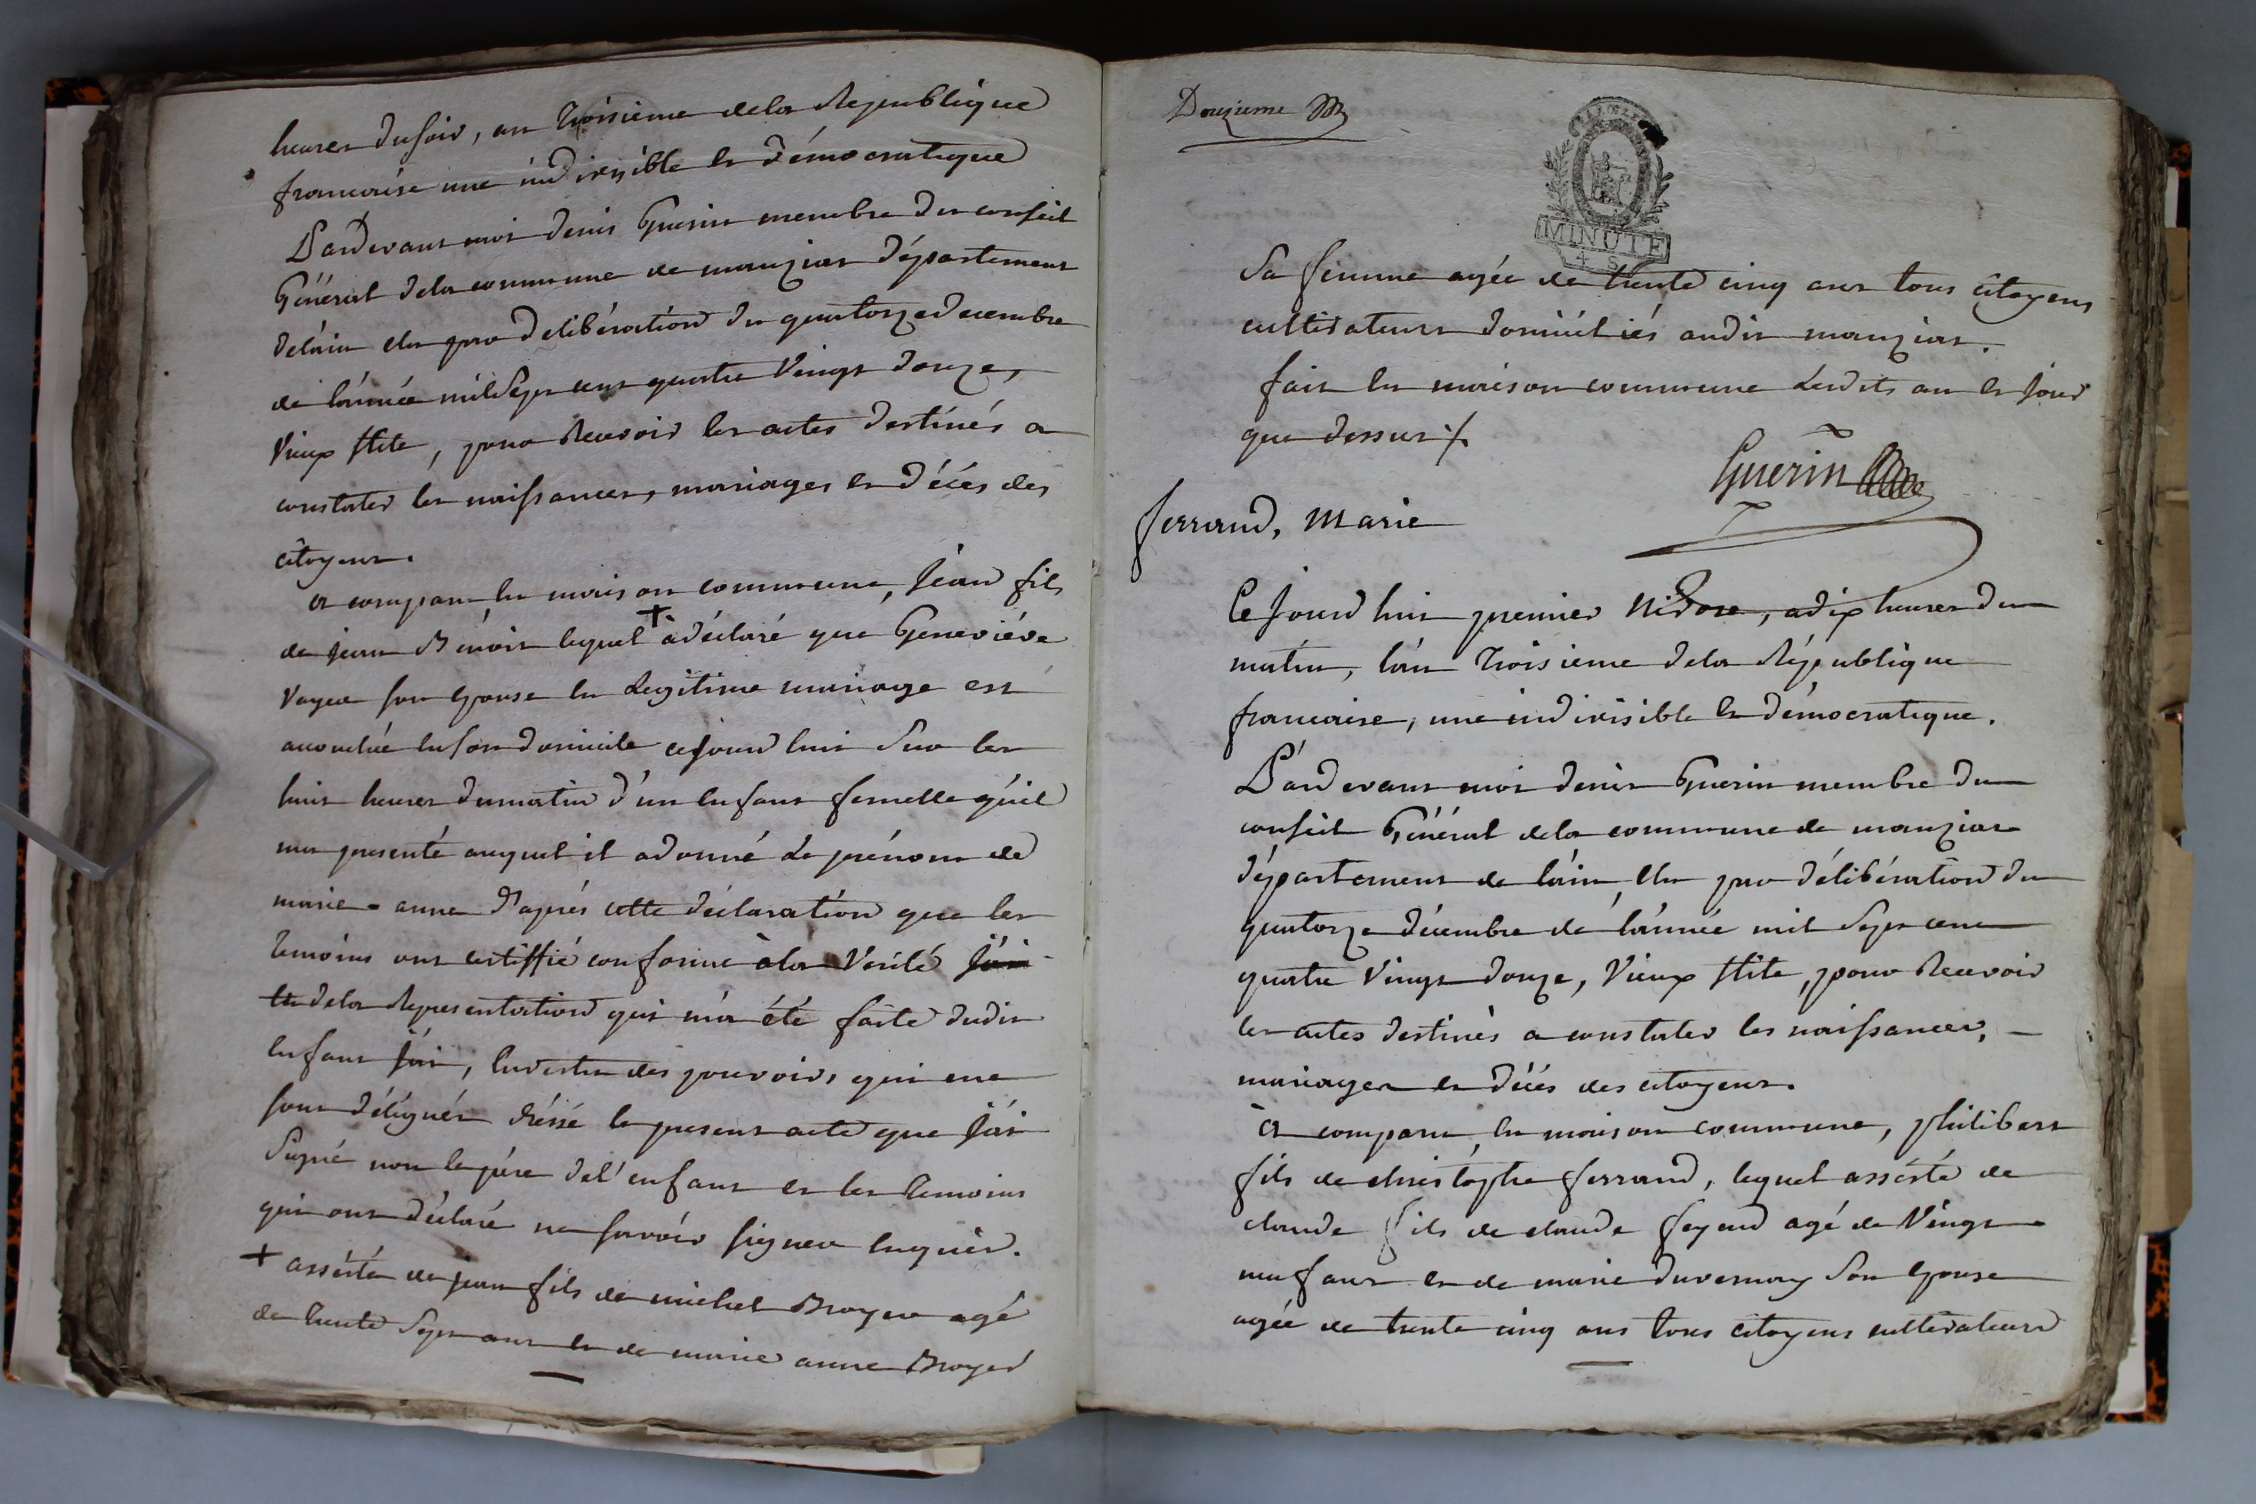 heures du soir, an troisieme dela Republique
francaise une indivisible et démocratique
Pardevant moi denis Guerin membre du conseil
Général dela commune de manziat département
delain elu par delibération du quatorze decembre
de l'année mil sept cent quatre Vingt douze,
Vieux stile, pour recevoir les actes destinés a
constater les naissances, mariages et décés des
citoyens.
a comparu en maison commune, Jean fils
de jean Benoit lequel + à déclaré que Geneviéve
son epouse en Legitime mariage est
accouchée en son domicile cejourd'hui sur les
huit heures dumatin d'un enfant femelle qu'il
ma presenté auquel il adonné le prénom de
marie-anne d'aprés cette déclaration que les
temoins ont certiffié conforme àla Vérité j'ai
et dela Representation qui m'a été faite dudit
enfant j'ai, en vertu des pouvoirs qui me
sont délégués dréssé le present acte que j'ai
Signé non le pére de l'enfant et les temoins
qui ont déclaré ne savoir signer enquis.
+ assisté de jean fils de michel Broyer agé
de trente sept ans et de marie anne Broyer
Douzieme
MINUTE
4 S
Sa femme agée de trente cinq ans tous citoyens
cultivateurs domiciliés audit manziat.
fait en maison commune Lesdits an et jour
que dessus ./.
Guerin
ferrand, Marie
Ce Jourd'hui premier Nivose, adix heures du
matin, l'an troisieme dela République
francaise, une indivisible et démocratique.
Pardevant moi denis Guerin membre du
conseil Général dela commune de manziat
département de l'ain elu par délibération du
quatorze décembre de l'année mil sept cent
quatre Vingt douze, Vieux stile, pour Recevoir
les actes destinés a constater les naissances, -
mariages et décés des citoyens.
à comparu en maison commune, philibert
fils de christophe ferrand, lequel assisté de
claude fils de claude feyeux agé de Vingt
neuf ans et de marie duvernay Son epouse
agée de trente cinq ans tous citoyens cultivateurs